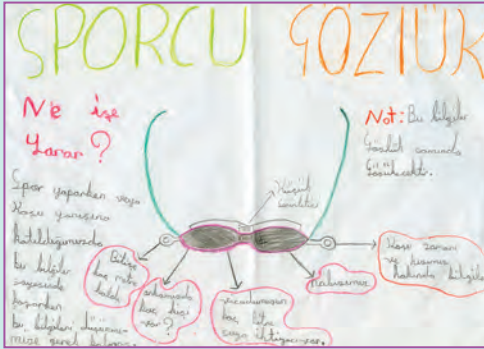 SPORCU GÖZLÜK
Ne işe
Yarar?
Spor yaparken veya
Koşu yarışına
katıldığımızda
bu bilgiler
sayesinde
koşarken
bu bilgileri düşünme-
mize gerek kalmaz.
Not: Bu bilgiler
Gözlük camında
Gözükecektir.
Küçük
Bitişe
kaç metre
kaldı
arkamızda
kaç kişi
var?
vücudumuzun
kaç litre
suya ihtiyacı var.
Nabzımız
Koşu zamanı
ve hızımız
hakkında bilgiler